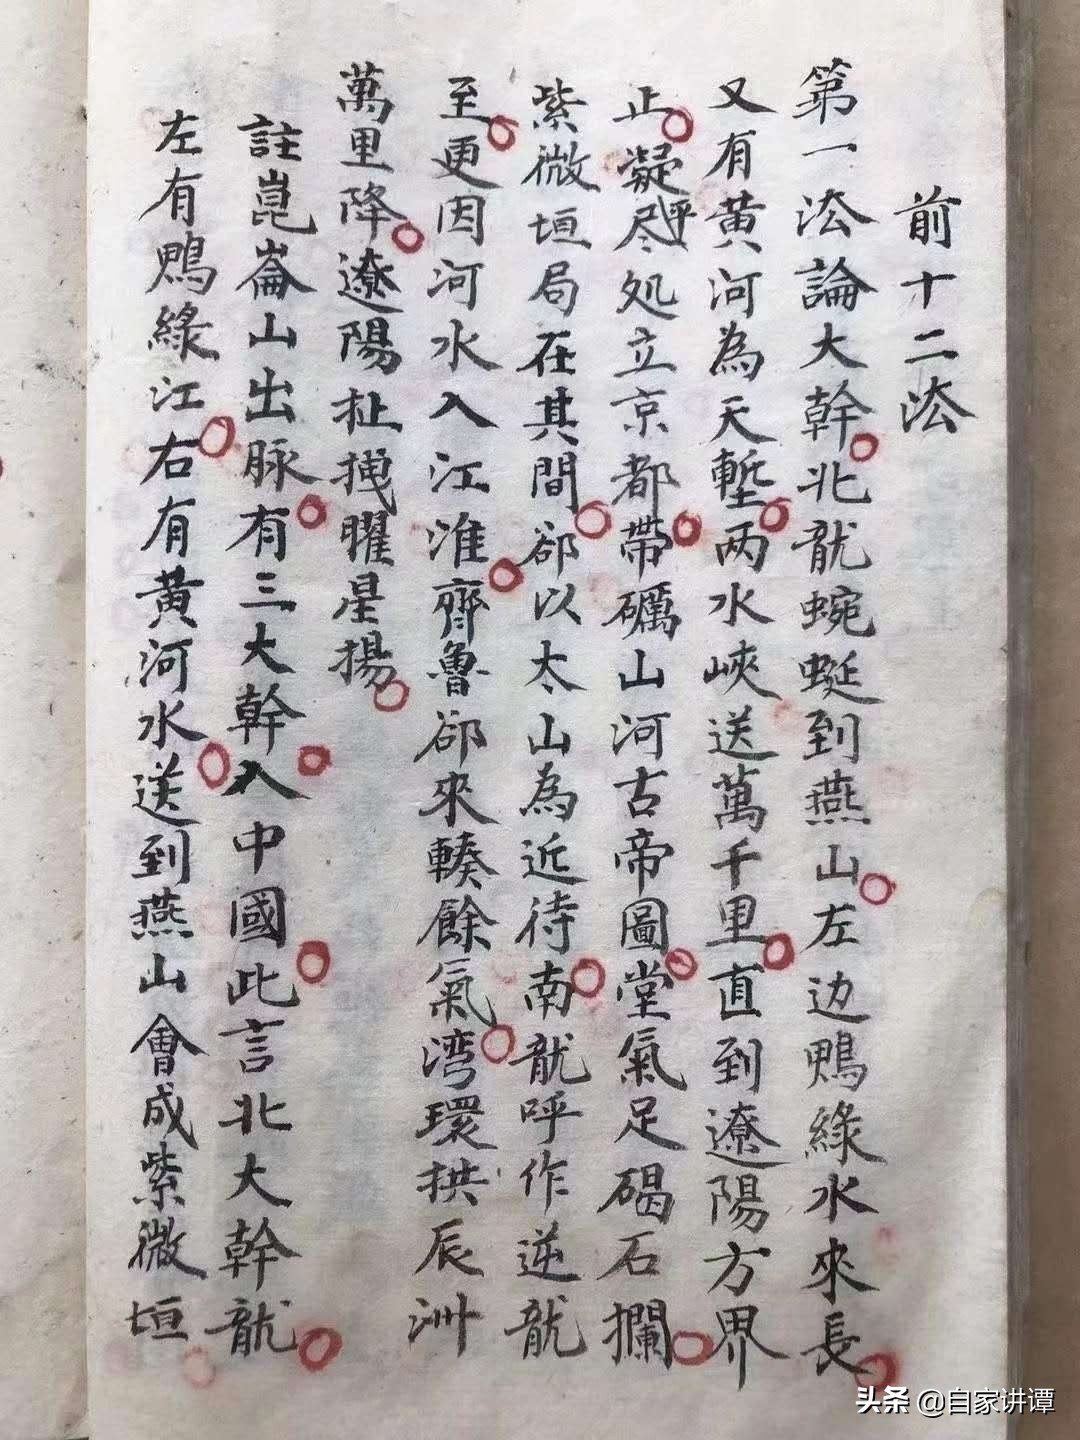 前十二法
第一法論大幹北龍蜿蜒到燕山左边鴨綠水來長
又有黄河為天塹两水峽送萬千里直到遼陽方界
止凝尽处立京都帶礪山河古帝圖堂氣足碣石攔
紫微垣局在其間郤以太山為近待南龍呼作逆龍
至更因河水入江淮齊魯郤來轃餘氣湾環拱辰洲
萬里降遼陽扯拽曜星揚
註崑崙山出脉有三大幹入中國此言北大幹龍
左有鴨綠江右有黄河水送到燕山會成紫微垣
头条 @自家讲谭